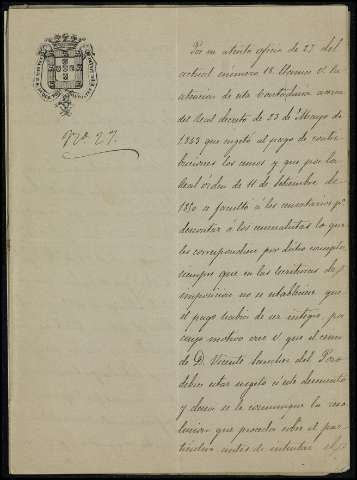 Nº. 27.
Por su atento oficio de 27 del
actual número 18 llama V. la
atencion de esta Contaduria acerca
del Real decreto de 23 de Mayo de
1843 que sujetó al pago de contri-
buciones los censos y que por la
Real órden de 11 de Setiembre de
1850 se facultó á los censatarios pª
descontar á los censualistas lo que
les correspondiere por dicho concepto
siempre que en las escrituras de
imposicion no se estableciere que
el pago habia de ser íntegro, por
cuyo motivo cree V. que el censo
de D. Vicente Sanchez del Pozo
debe estar sugeto á este descuento
y desea se le comunique la reso-
lucion que proceda sobre el par-
ticular antes de intentar el